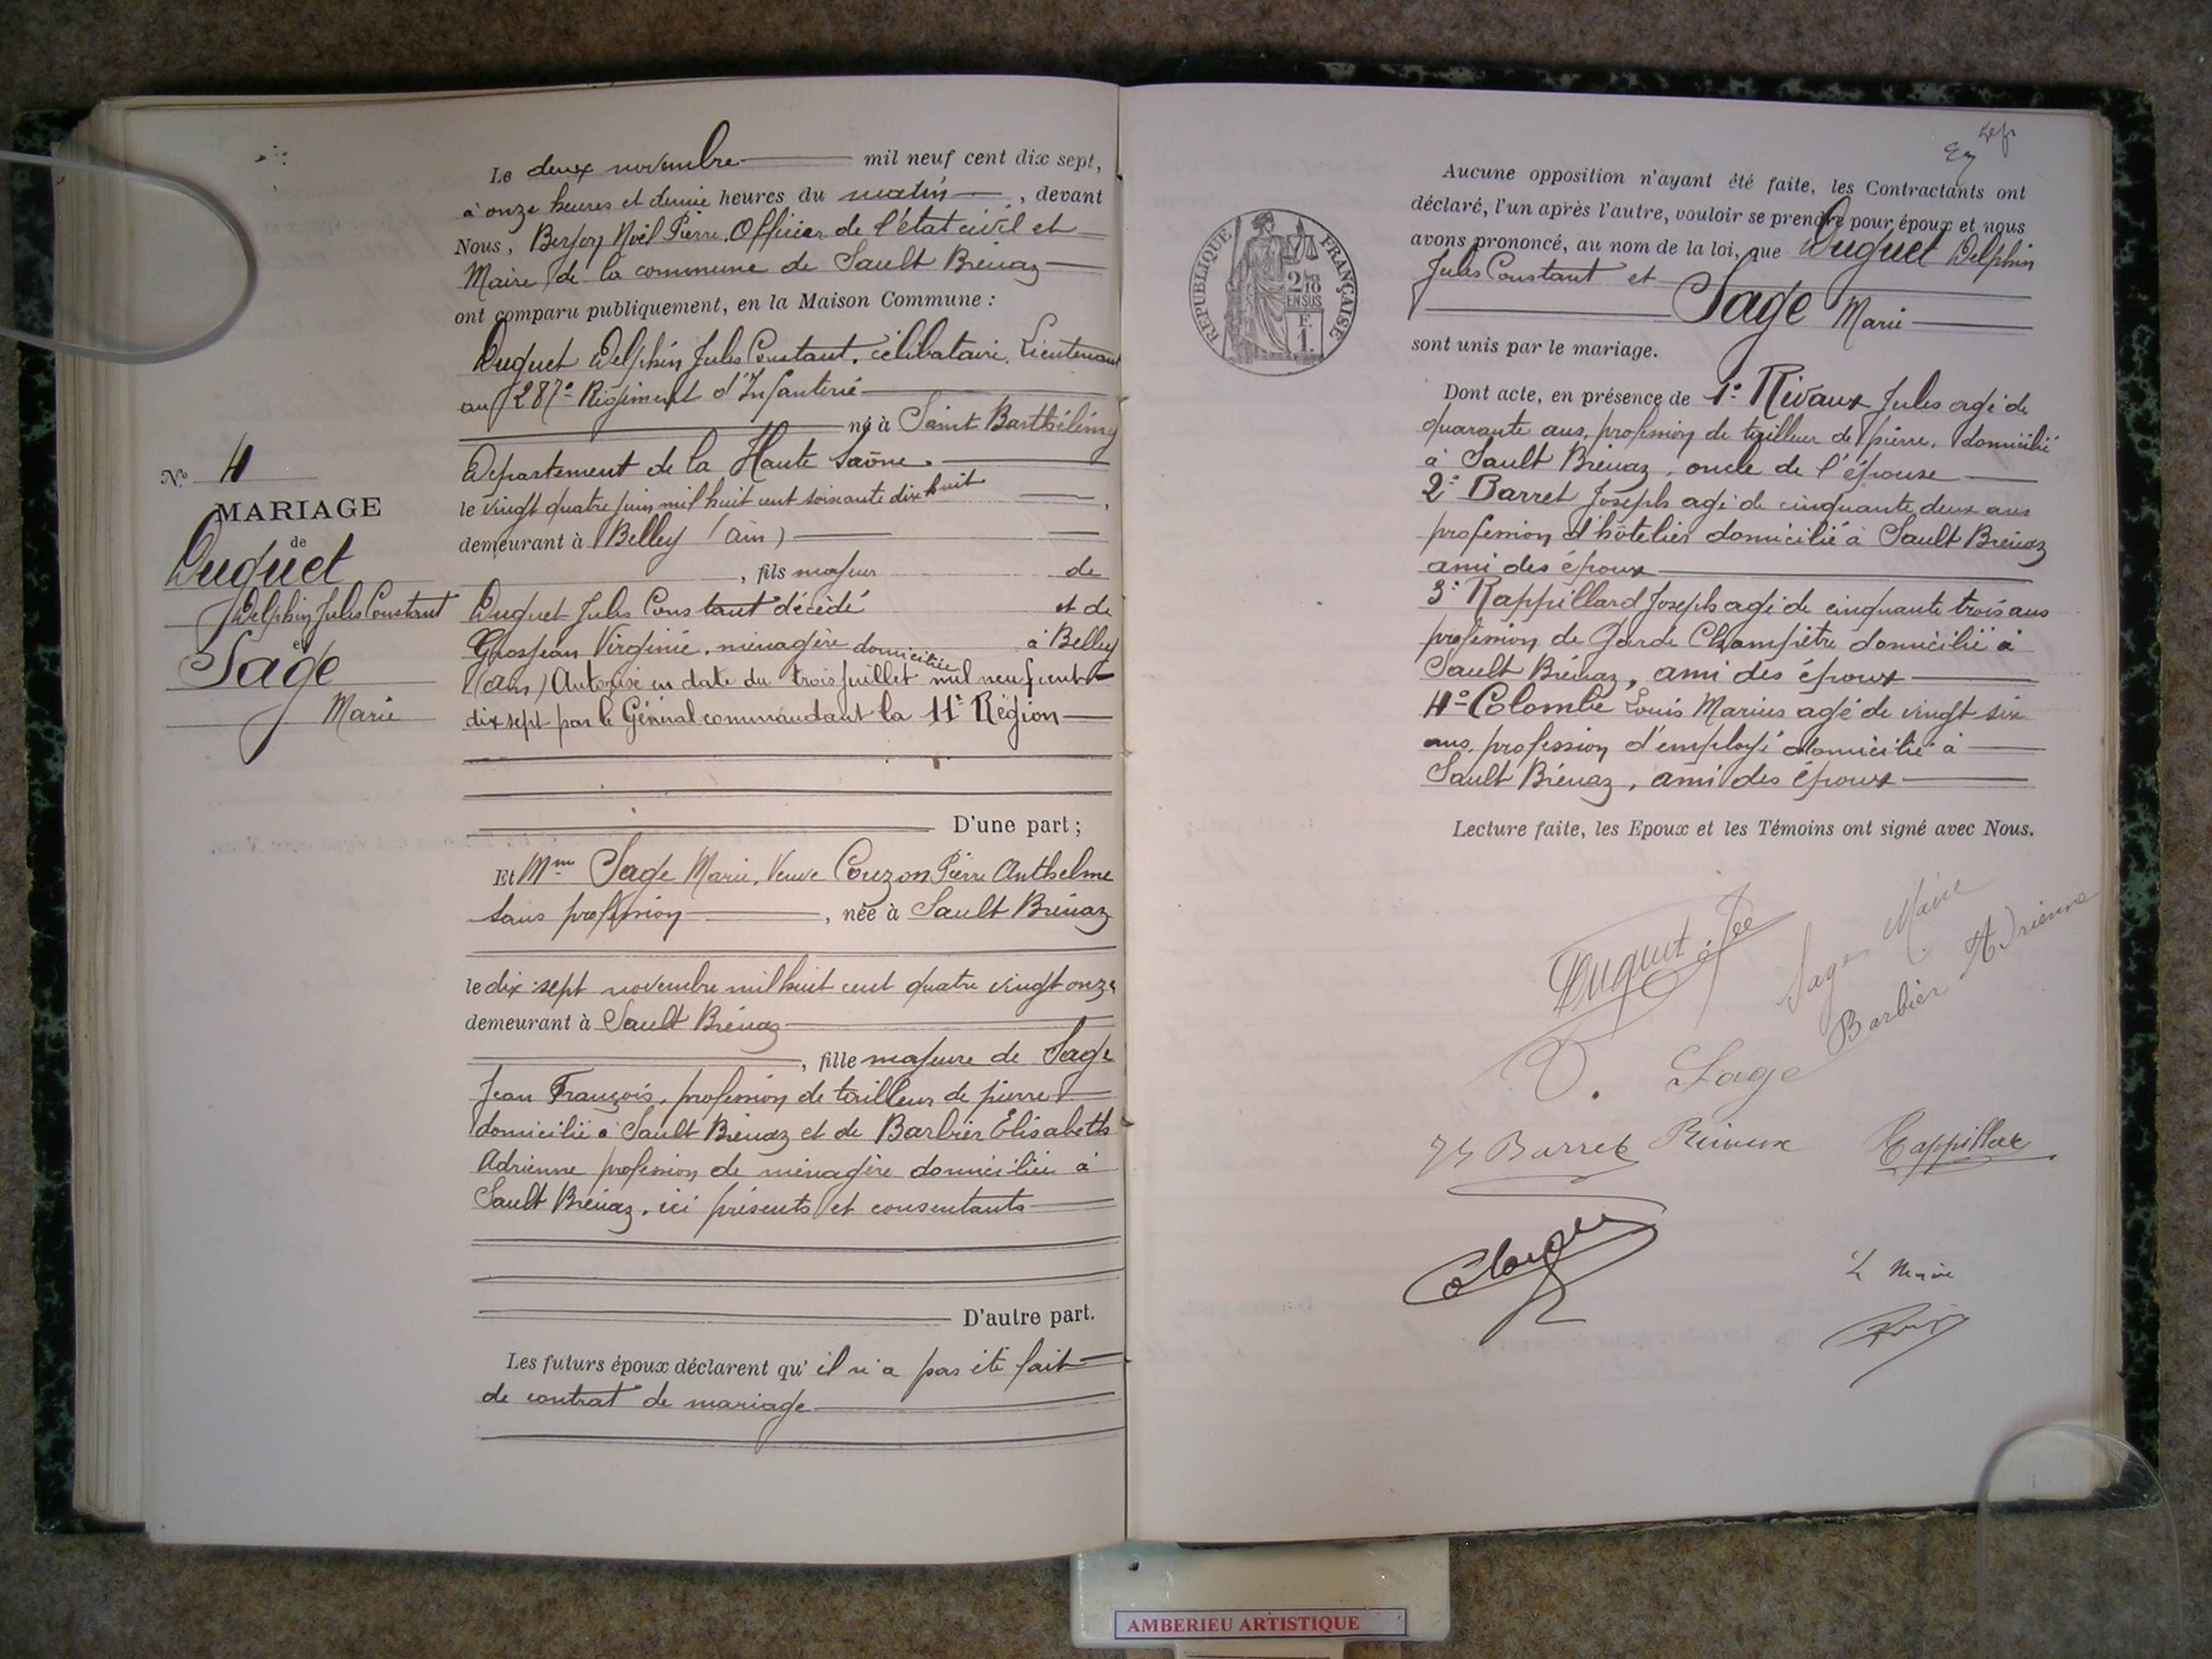 Le deux novembre mil neuf cent dix sept,
à onze heures et demie heures du matin, devant
Nous, Noël Pierre, Officier de l'état civil et
Maire de la commune de Sault Brénaz
ont comparu publiquement, en la Maison Commune :
Duguet Delphin Jules Constant, célibataire, Lieutenant
au 287e Régiment d'Infanterie
né à Saint Barthélémy
Département de la Haute Saône.
le vingt quatre juin mil huit cent soixante dix huit,
demeurant à Belley (Ain)
, fils majeur de
Duguet Jules Constant décédé et de
Grosjean Virginie, ménagère domiciliée à Belley
(Ain) Autorisé en date du trois juillet mil neuf cent
dix sept par le Général commandant la 11e Région
D'une part ;
Et Mme Sage Marie, Veuve Couzon Pierre Anthelme
sans profession, née à Sault Brénaz
le dix sept novembre mil huit cent quatre vingt onze
demeurant à Sault Brénaz
, fille majeure de Sage
Jean François, profession de tailleur de pierre
domicilié à Sault Brénaz et de Barbier Elisabeth
Adrienne profession de ménagère domiciliée à
Sault Brénaz, ici présents et consentants
D'autre part.
Les futurs époux déclarent qu'il n'a pas été fait
de contrat de mariage
No 4
MARIAGE
de
Duguet
Delphin Jules Constant
et
Sage
Marie
REPUBLIQUE FRANÇAISE
2/10
EN SUS
F.
1.
Aucune opposition n'ayant été faite, les Contractants ont
déclaré, l'un après l'autre, vouloir se prendre pour époux et nous
avons prononcé, au nom de la loi, que Duguet Delphin
Jules Constant et
Sage Marie
sont unis par le mariage.
Dont acte, en présence de 1° Rivaux Jules agé de
quarante ans, profession de tailleur de pierre, domicilié
à Sault Brénaz, oncle de l'épouse
2° Barret Joseph agé de cinquante deux ans
profession d'hôtelier domicilié à Sault Brénaz
ami des époux
3° Rappillard Joseph agé de cinquante trois ans
profession de Garde Champêtre domicilié à
Sault Brénaz, ami des époux
4° Colombe Louis Marius agé de vingt six
ans, profession d'employé domicilié à
Sault Brénaz, ami des époux
Lecture faite, les Epoux et les Témoins ont signé avec Nous.
Duguet
Sage Marie
Barbier Adrienne
Sage
Barret
Le Maire
AMBERIEU ARTISTIQUE